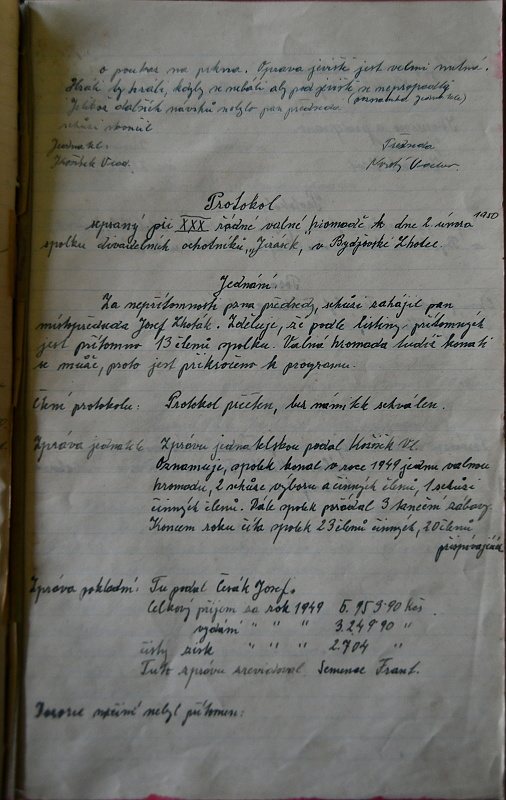 o pouhar na prkna. Oprava jevišt jest velmi nutná.
Hráli by hráli, kdyby se nebáli aby pod jevišt se nepropadly
Jelikož dalších návrhů nebylo pan předseda
schůzi skončil
Jednatel: Předseda
Košišek Vlad. Václav
Protokol
sepsaný při XXX řádné valné hromadě dne 2 února 1950
spolku divadelních ochotníků „Jirásek„ v Bydžovské Lhotce.
Jednání
Za nepřítomnosti pana předsedy, schůzi zahájil pan
místopředseda Josef Lhoták. Zděluje, že podle listiny přítomných
jest přítomno 13 členů spolku. Valná hromada tudíž konati
se může, proto jest přikročeno k programu.
Čtení protokolu: Protokol přečten, bez námitek schválen.
Zpráva jednatele Zprávu jednatelskou podal Košišek Vl.
Oznamuje, spolek konal v roce 1949 jednu valnou
hromadu, 2 schůze výboru a činných členů, 1 schůzi
činných členů. Dále spolek pořádal 3 taneční zábavy.
Koncem roku čítá spolek 23 členů činných, 20 členů
přispívajících
Zpráva pokladní: Tu podal Čerák Josef.
Celkový příjem za rok 1949 5.953·90 Kčs.
vydání " " " 3.249·90 "
čistý zisk " " " 2.704 "
Tuto zprávu zrevidoval Semenec Frant.
nebyl přítomen: